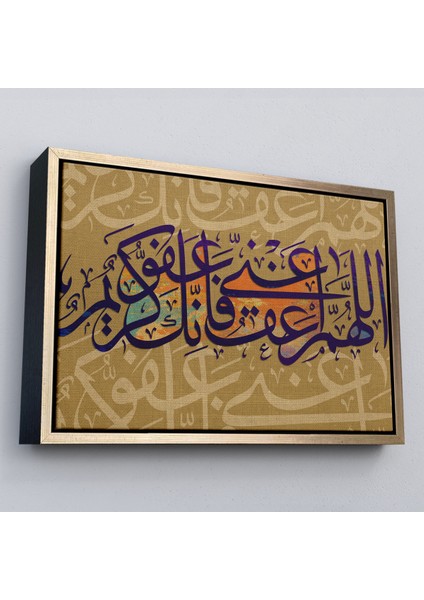 اللهم اعف عني فإنك عفو كريم